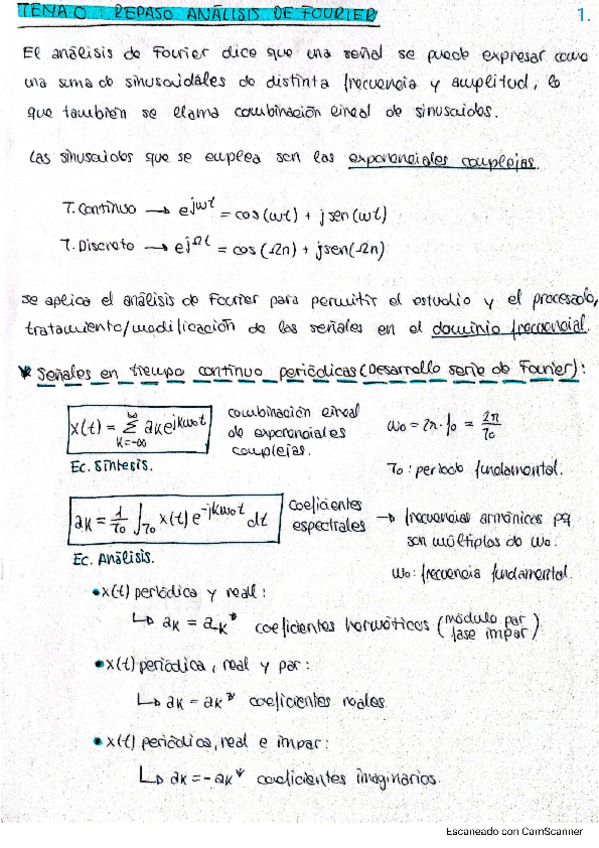 TEMA 0: REPASO ANÁLISIS DE FOURIER
1.
El análisis de Fourier dice que una señal se puede expresar como
una suma de sinusoidales de distinta frecuencia y amplitud, lo
que también se llama combinación lineal de sinusoides.
Las sinusoides que se emplea son las exponenciales complejas.
T. Continuo → e^{jωt} = cos(ωt) + j sen(ωt)
T. Discreto → e^{jΩt} = cos(Ωn) + j sen(Ωn)
Se aplica el análisis de Fourier para permitir el estudio y el procesado,
tratamiento/modificación de las señales en el dominio frecuencial.
* Señales en tiempo continuo periódicas (Desarrollo serie de Fourier):
x(t) = ∑_{k=-∞}^{∞} a_k e^{jkω₀t} combinación lineal de exponenciales complejas. ω₀ = 2π·f₀ = 2π/T₀
Ec. Síntesis. T₀: periodo fundamental.
a_k = 1/T₀ ∫_{T₀} x(t) e^{-jkω₀t} dt coeficientes espectrales → frecuencias armónicas pq son múltiplos de ω₀.
Ec. Análisis. ω₀: frecuencia fundamental.
• x(t) periódica y real:
↳ a_k = a_{-k}^* coeficientes hermíticos (módulo par fase impar)
• x(t) periódica, real y par:
↳ a_k = a_k^* coeficientes reales.
• x(t) periódica, real e impar:
↳ a_k = -a_k^* coeficientes imaginarios.
Escaneado con CamScanner